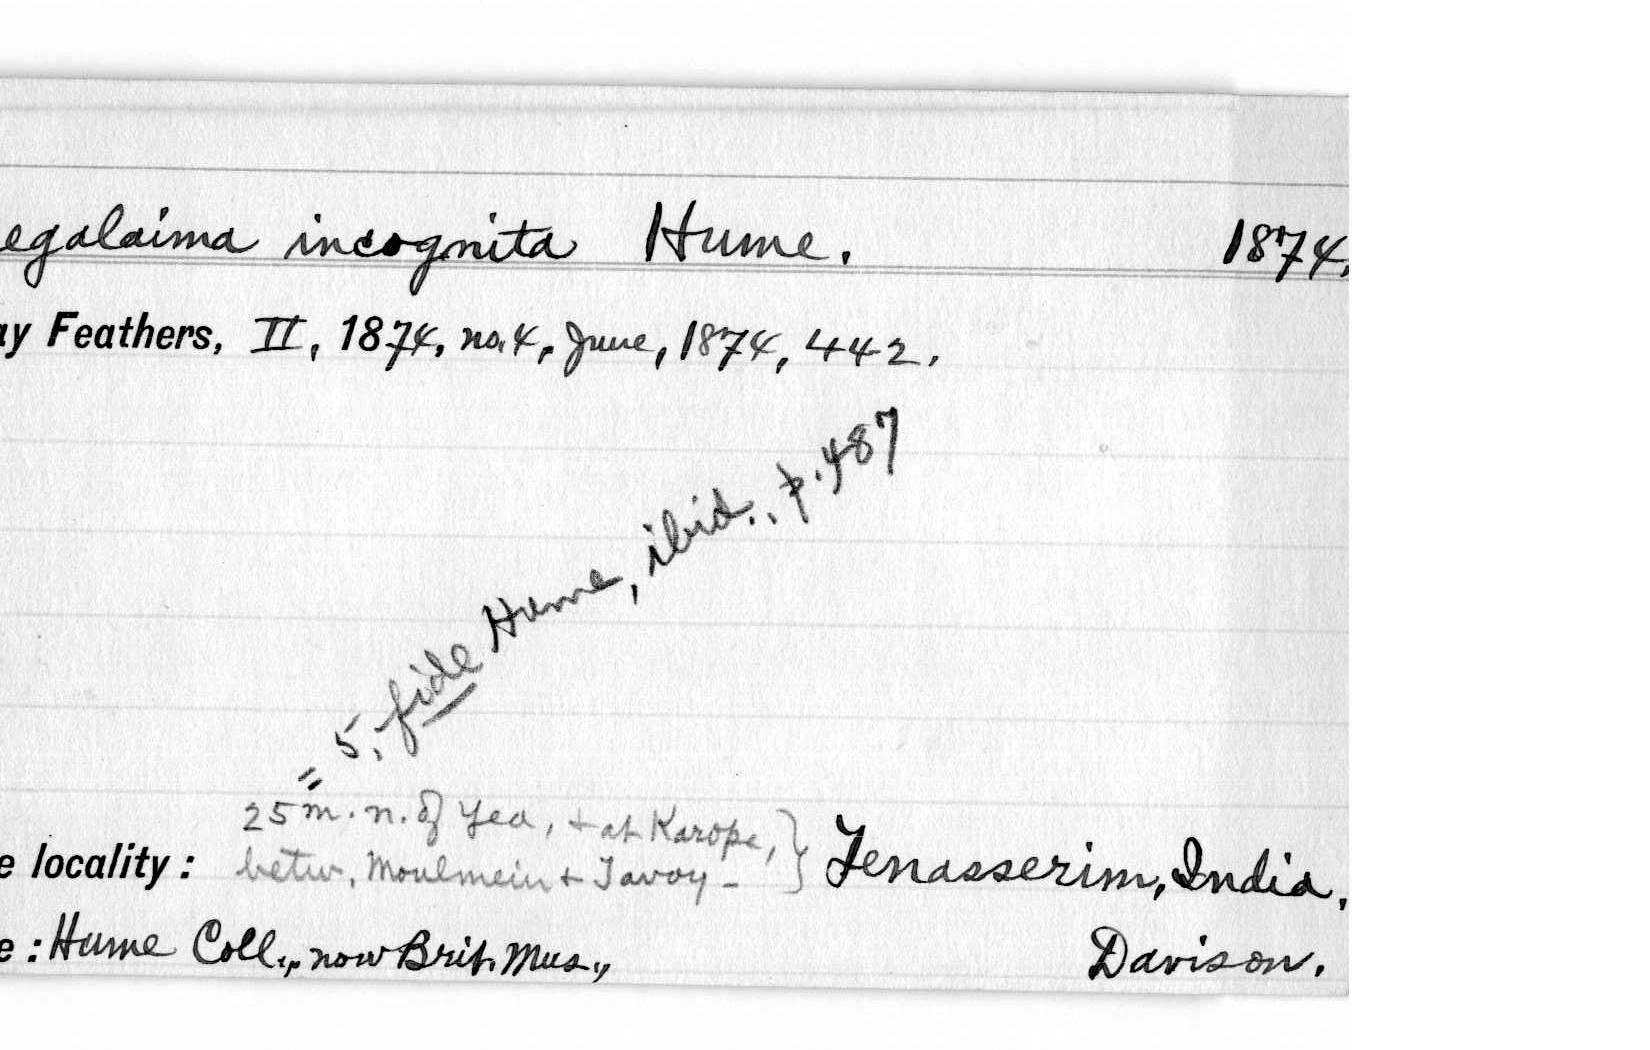 egalaima incognita Hume. 1874.
ay Feathers, II, 1874, no. 4, June, 1874, 442.
= 5, fide Hume, ibid., p. 487
25 m. n. of Yea, + at Karope,
betw. Moulmein + Tavoy -
e locality: Tenasserim, India.
e: Hume Coll., now Brit. Mus., Davison.